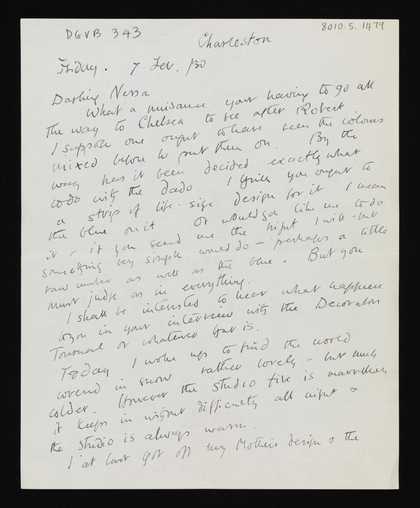 DGVB 343
8010.5.1479
Charleston
Friday. 7 Fev. /30
Darling Nessa
What a nuisance your having to go all
the way to Chelsea to see after Robert
I suppose one ought to have seen the colours
mixed before he put them on. By the
way has it been decided exactly what
to do with the Dado I think you ought to
a strip of life-size design for it I mean
the blue on it Or would you like me to do
it - if you send me the
something very simple would do - perhaps a little
raw umber as well as the blue. But you
must judge as in everything.
I shall be interested to hear what happens
to you in your interview with the Decorators
or whatever that is.
Today I woke up to find the world
covered in snow rather lovely - but much
colder. However the studio fire is marvellous
it keeps in without difficulty all night &
the studio is always warm.
I at last got off my Mother's design & the